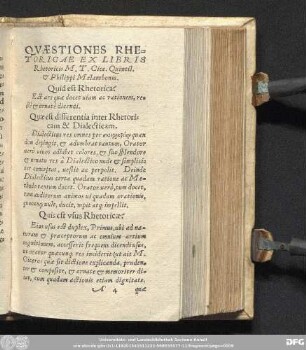 QVÆSTIONES RHE-
TORICAE EX LIBRIS
Rhetoricis M. T. Cice. Quintil.
& Philippi Melanthonis.
Quid est Rhetorica?
Est ars quæ docet viam ac rationem, re-
ctè & ornatè dicendi.
Quæ est differentia inter Rhetori-
cam & Dialecticam.
Dialecticus res omnes per
dam depingit, & adumbrat tantum, Orator
verò viuos addidit colores, & suo splendore
& ornatu res à Dialectico nudè & simplici-
ter conceptas, vestit ac perpolit. Deinde
Dialecticus certa quadam ratione ac Me-
thodo tantum docet. Orator verò, cum docet,
tum auditorum animos ad quadam orationis,
docet, rapit atq; impellit.
Quis est vsus Rhetoricæ?
Eius vsus est duplex, Primus, vbi ad na-
turam & præceptorum ac omnium artium
cognitionem, accesserit frequens dicendi vsus,
vt orator quamuis res inciderit quæ ait M.
Cicero: quæ sit dictione explicanda, pruden-
ter & compositè, & ornatè & memoriter di-
cat, cum quadam actionis etiam dignitate.
A 4 quæ
Universitäts- und Landesbibliothek Sachsen-Anhalt
DFG